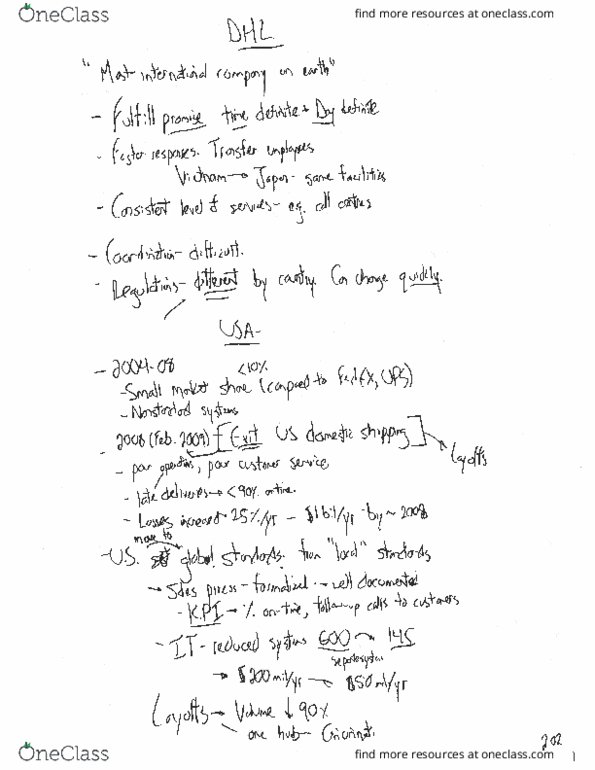 OneClass
find more resources at oneclass.com
DHL
"Most international company on earth"
- Fulfill promise time definite + Day definite
- Faster responses. Transfer employees
Vietnam → Japan - same facilities
- Consistent level of services - eg. call centres
- Coordination - difficult.
- Regulations - different by country. Can change quickly.
USA -
- 2004-08 <10%
- Small market share (compared to FedEx, UPS)
- Nonstandard systems
- 2008 (Feb. 2009) Exit US domestic shipping → Layoffs
- poor operations, poor customer service
- late deliveries → <90% on time.
- Losses increased 25%/yr - $1bil/yr by ~ 2008
move to
- U.S. global standards from "local" standards
→ Sales process - formalized → well documented
- KPI → % on-time, follow-up calls to customers
- IT - reduced systems 600 → 145
separate systems
→ $200 mil/yr → $50 mil/yr
Layoffs → Volume ↓ 90%
one hub - Cincinnati
202
1
OneClass
find more resources at oneclass.com